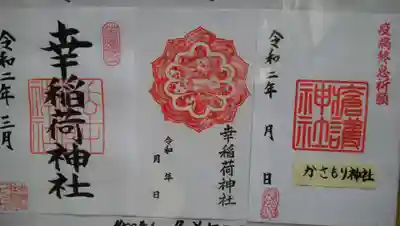 疫病終息祈願
瘡護
神社
かさもり神社
令和二年 月 日
幸稲荷神社
令和 年
月 日
幸稲荷神社
令和二年三月